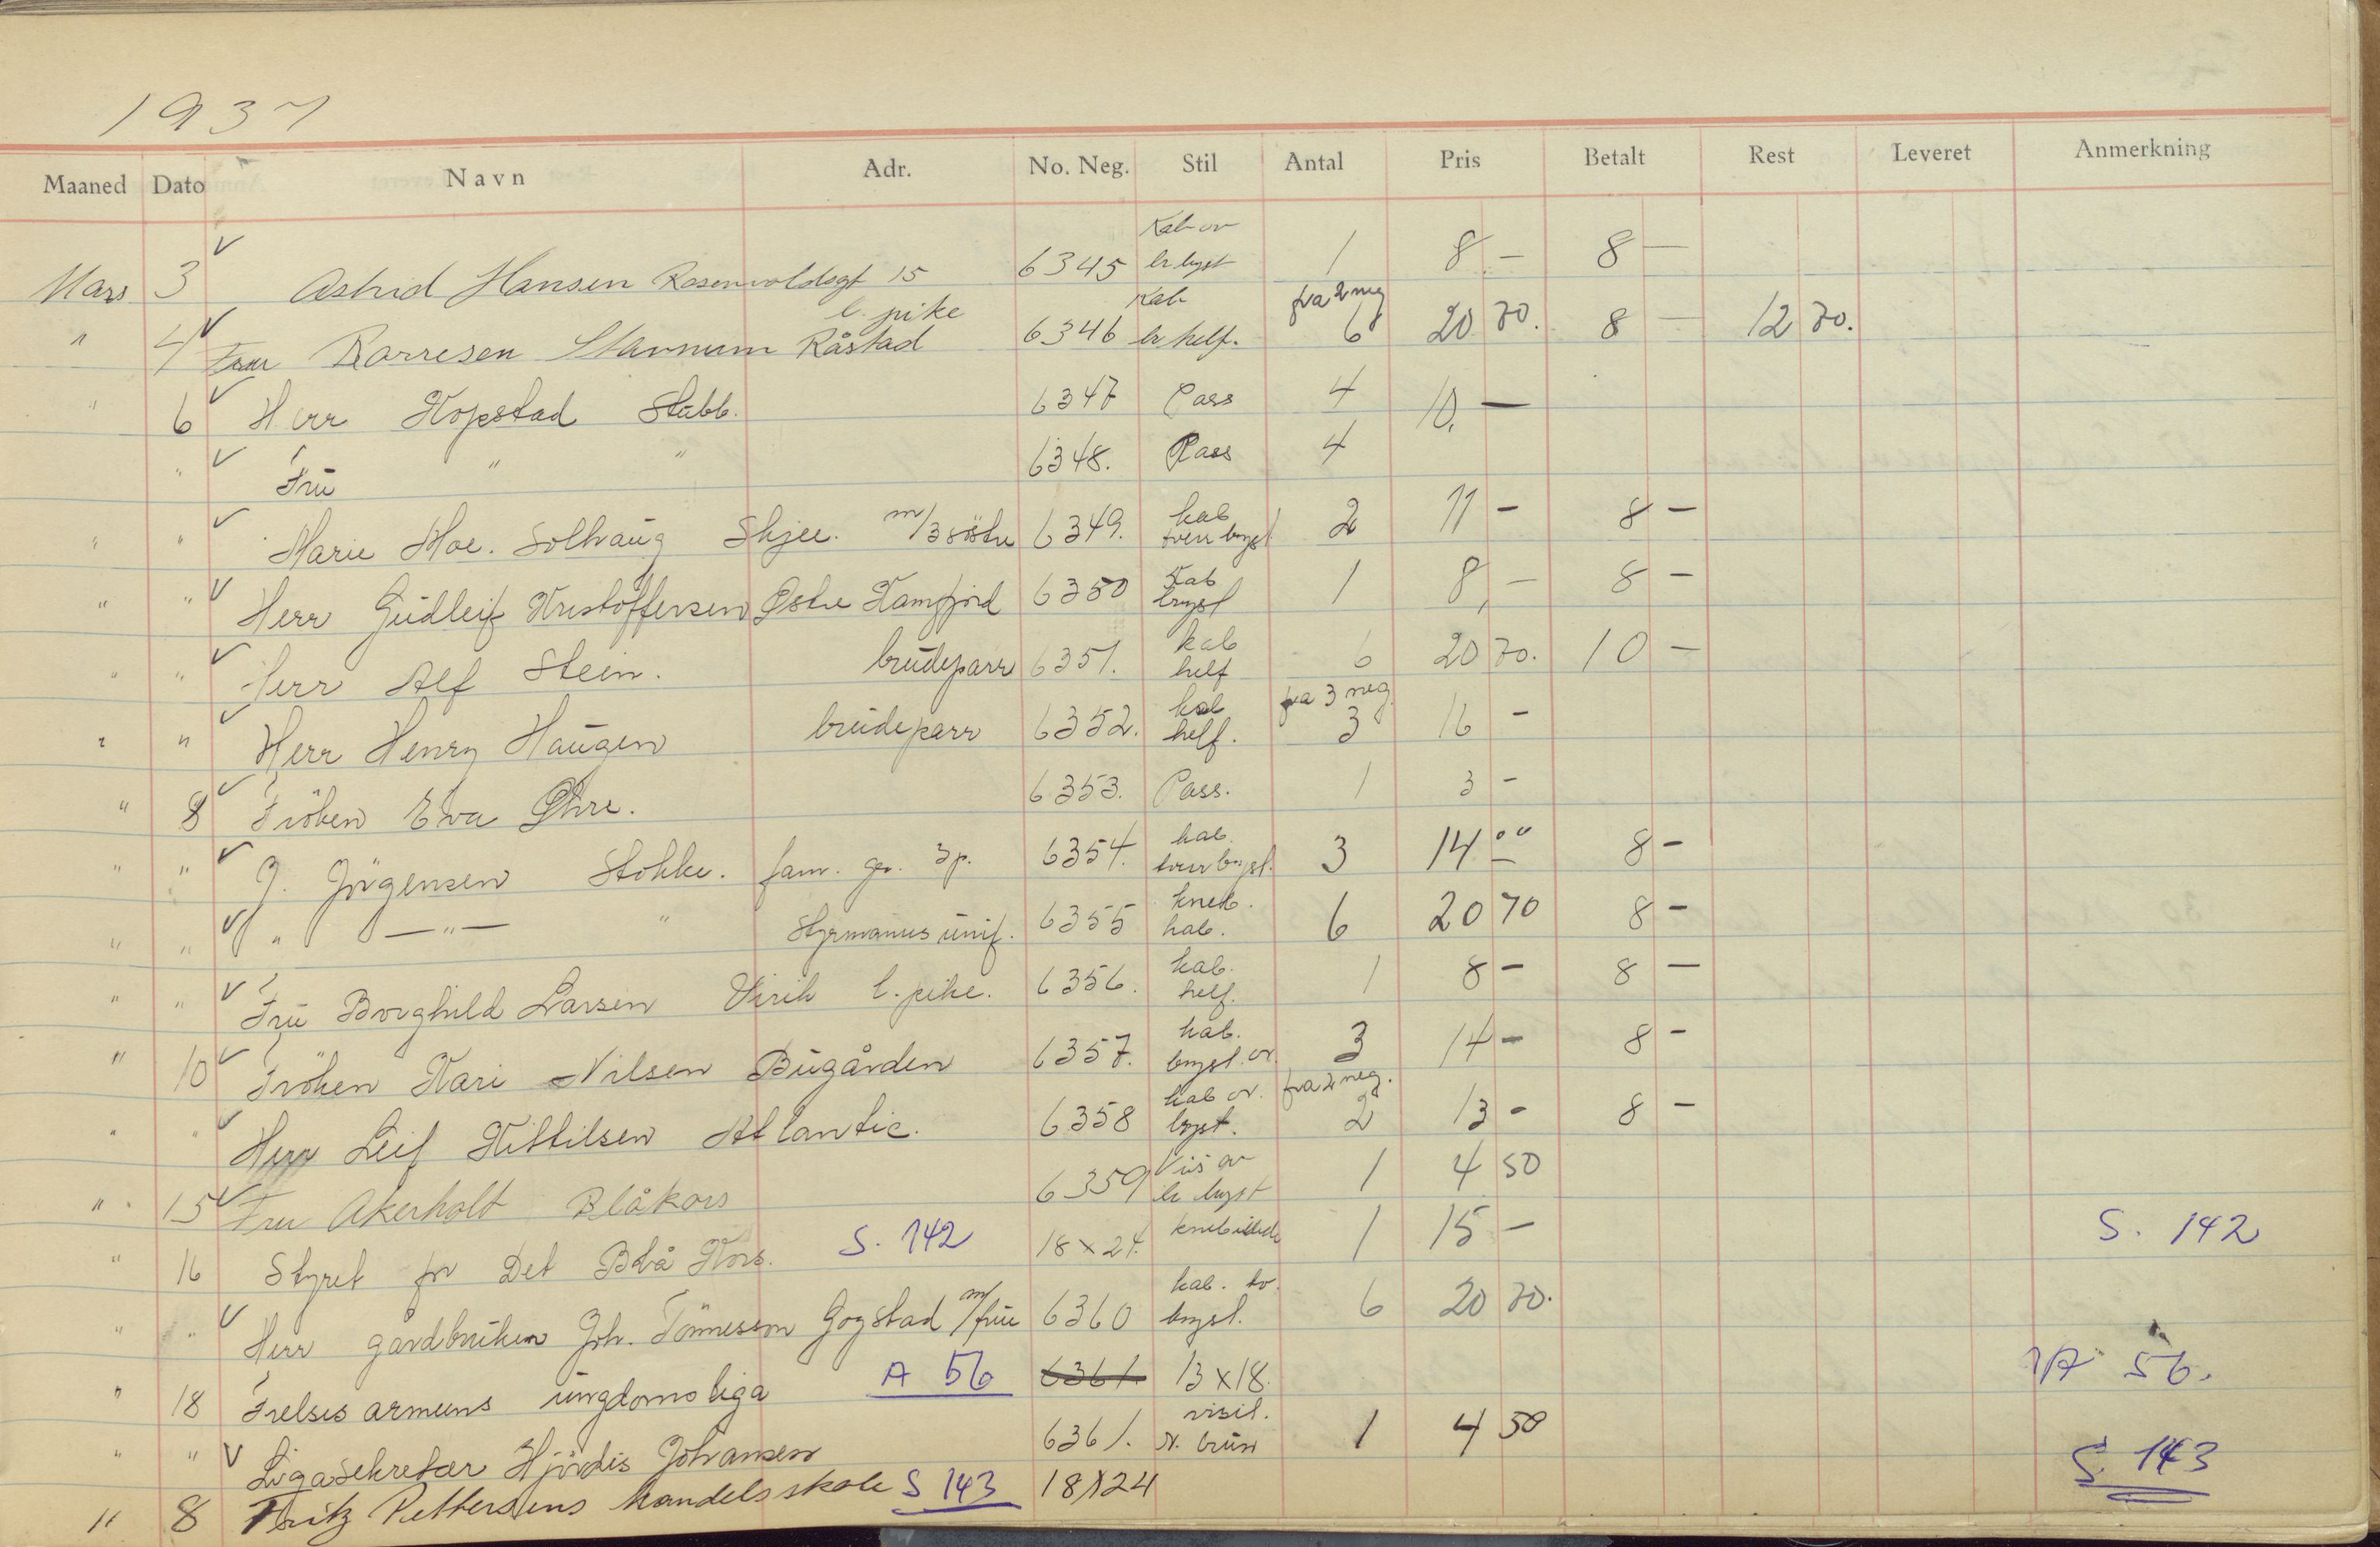 1937
Maaned Dato Navn Adr. No. Neg. Stil Antal Pris Betalt Rest Leveret Anmerkning
Kab ov
Mars 3 v Astrid Hansen Rosenvoldsgt 15 6345 br byst 1 8 - 8 -
l. pike Kab fra 2 neg
" 4 v Fru Borresen Stavnum Råstad 6346 br helf. 6 20 70. 8 - 12 70.
" 6 v Herr Kopstad Stubb. 6347 Pass 4 10, -
" v Frü " " 6348. Pass 4
kab
" " v Marie Moe. Solhaüg Skjee. m/3 söstre 6349. tverr bryst 2 11 - 8 -
Kab
" " v Herr Güdleif Kristoffersen Østre Kamfjord 6350 bryst 1 8, - 8 -
kab
" " v Herr Alf Stein. brüdeparr 6351. helf 6 20 70. 10 -
kab fra 3 neg.
" " v Herr Henry Haügen brüdeparr 6352. helf. 3 16 -
" 8 v Fröken Eva Øhre. 6353. Pass. 1 3 -
kab.
" " v J. Jörgensen Stokke. fam. gr. 3 p. 6354. tverr bryst. 3 14 00 8 -
kneb.
" " v " — " — " Styrmanns ünif. 6355 kab. 6 20 70 8 -
kab.
" " v Frü Borghild Larsen Virik l. pike. 6356. helf. 1 8 - 8 -
kab.
" 10 v Fröken Kari Nilsen Bügården 6357. bryst. ov. 3 14 - 8 -
kab ov. fra 2 neg.
" " v Herr Leif Kittilsen Atlantic. 6358 bryst. 2 13 - 8 -
Vis ov
" 15 v Fru Akerholt Blåkors 6359 br byst 1 4 50
" 16 Styret for Det Blå Kors. S. 142 18 x 24. knebillede 1 15 - S. 142
kab. tv.
" " v Herr gårdbrüker Joh. Tönnesson Gogstad m/frü 6360 bryst. 6 20 70.
" 18 Frelses armeens üngdomsliga A 56 6361. 13 x 18. A 56.
visit.
" " v Ligasekretær Hjördis Johansen 6361. br. brün 1 4 50
" 8 Fritz Pettersens handelsskole S 143 18x24 S. 143